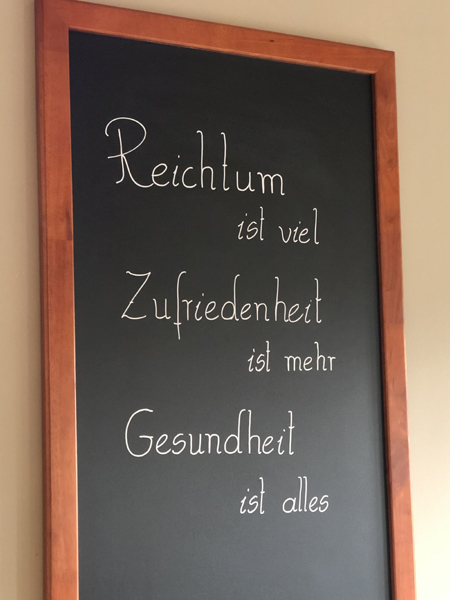 Reichtum
ist viel
Zufriedenheit
ist mehr
Gesundheit
ist alles